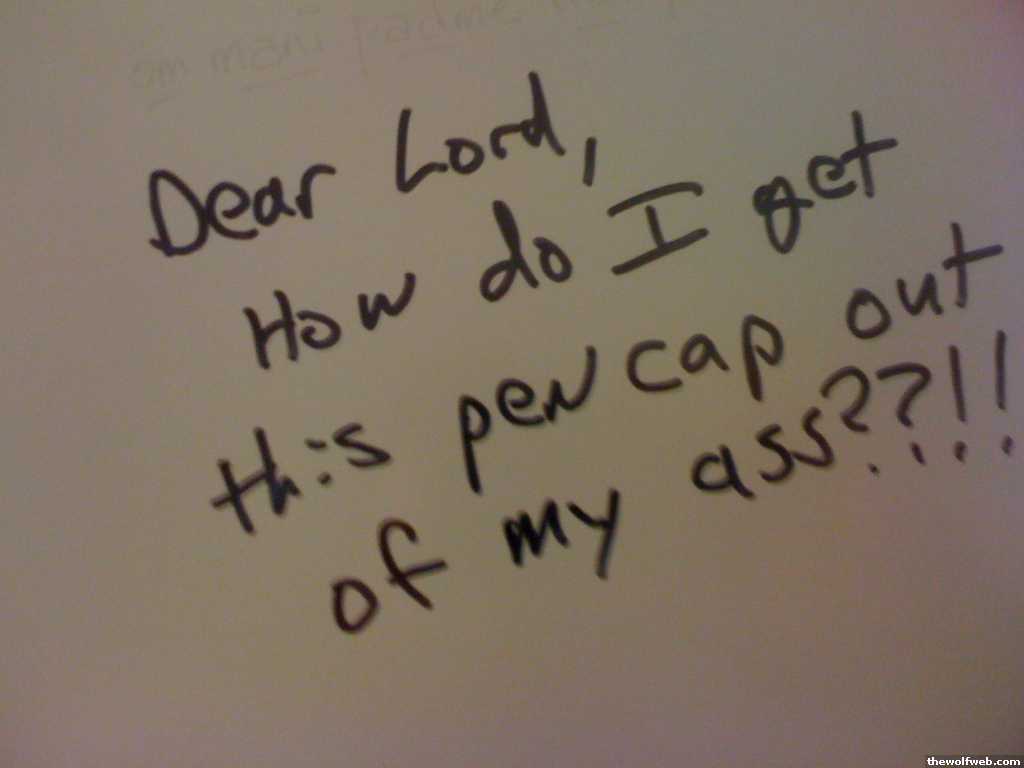 om mani padme
Dear Lord,
How do I get
this pen cap out
of my ass??!!
thewolfweb.com